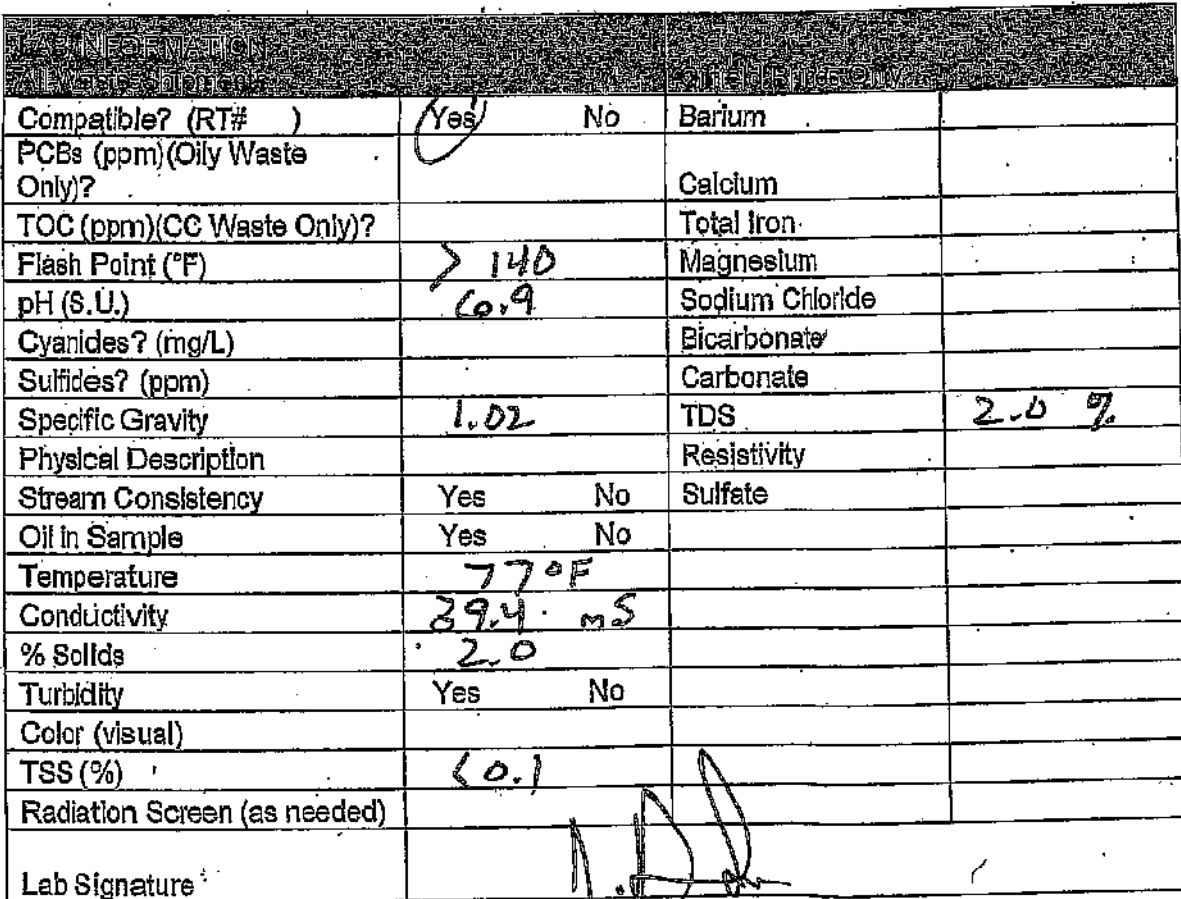 LAB INFORMATION
All Waste Shipments Oilfield Brines Only
Compatible? (RT# ) Yes No Barium
PCBs (ppm)(Oily Waste
Only)? Calcium
TOC (ppm)(CC Waste Only)? Total Iron
Flash Point (°F) > 140 Magnesium
pH (S.U.) 6.9 Sodium Chloride
Cyanides? (mg/L) Bicarbonate
Sulfides? (ppm) Carbonate
Specific Gravity 1.02 TDS 2.0 %
Physical Description Resistivity
Stream Consistency Yes No Sulfate
Oil in Sample Yes No
Temperature 77°F
Conductivity 39.4 mS
% Solids 2.0
Turbidity Yes No
Color (visual)
TSS (%) <0.1
Radiation Screen (as needed)
Lab Signature